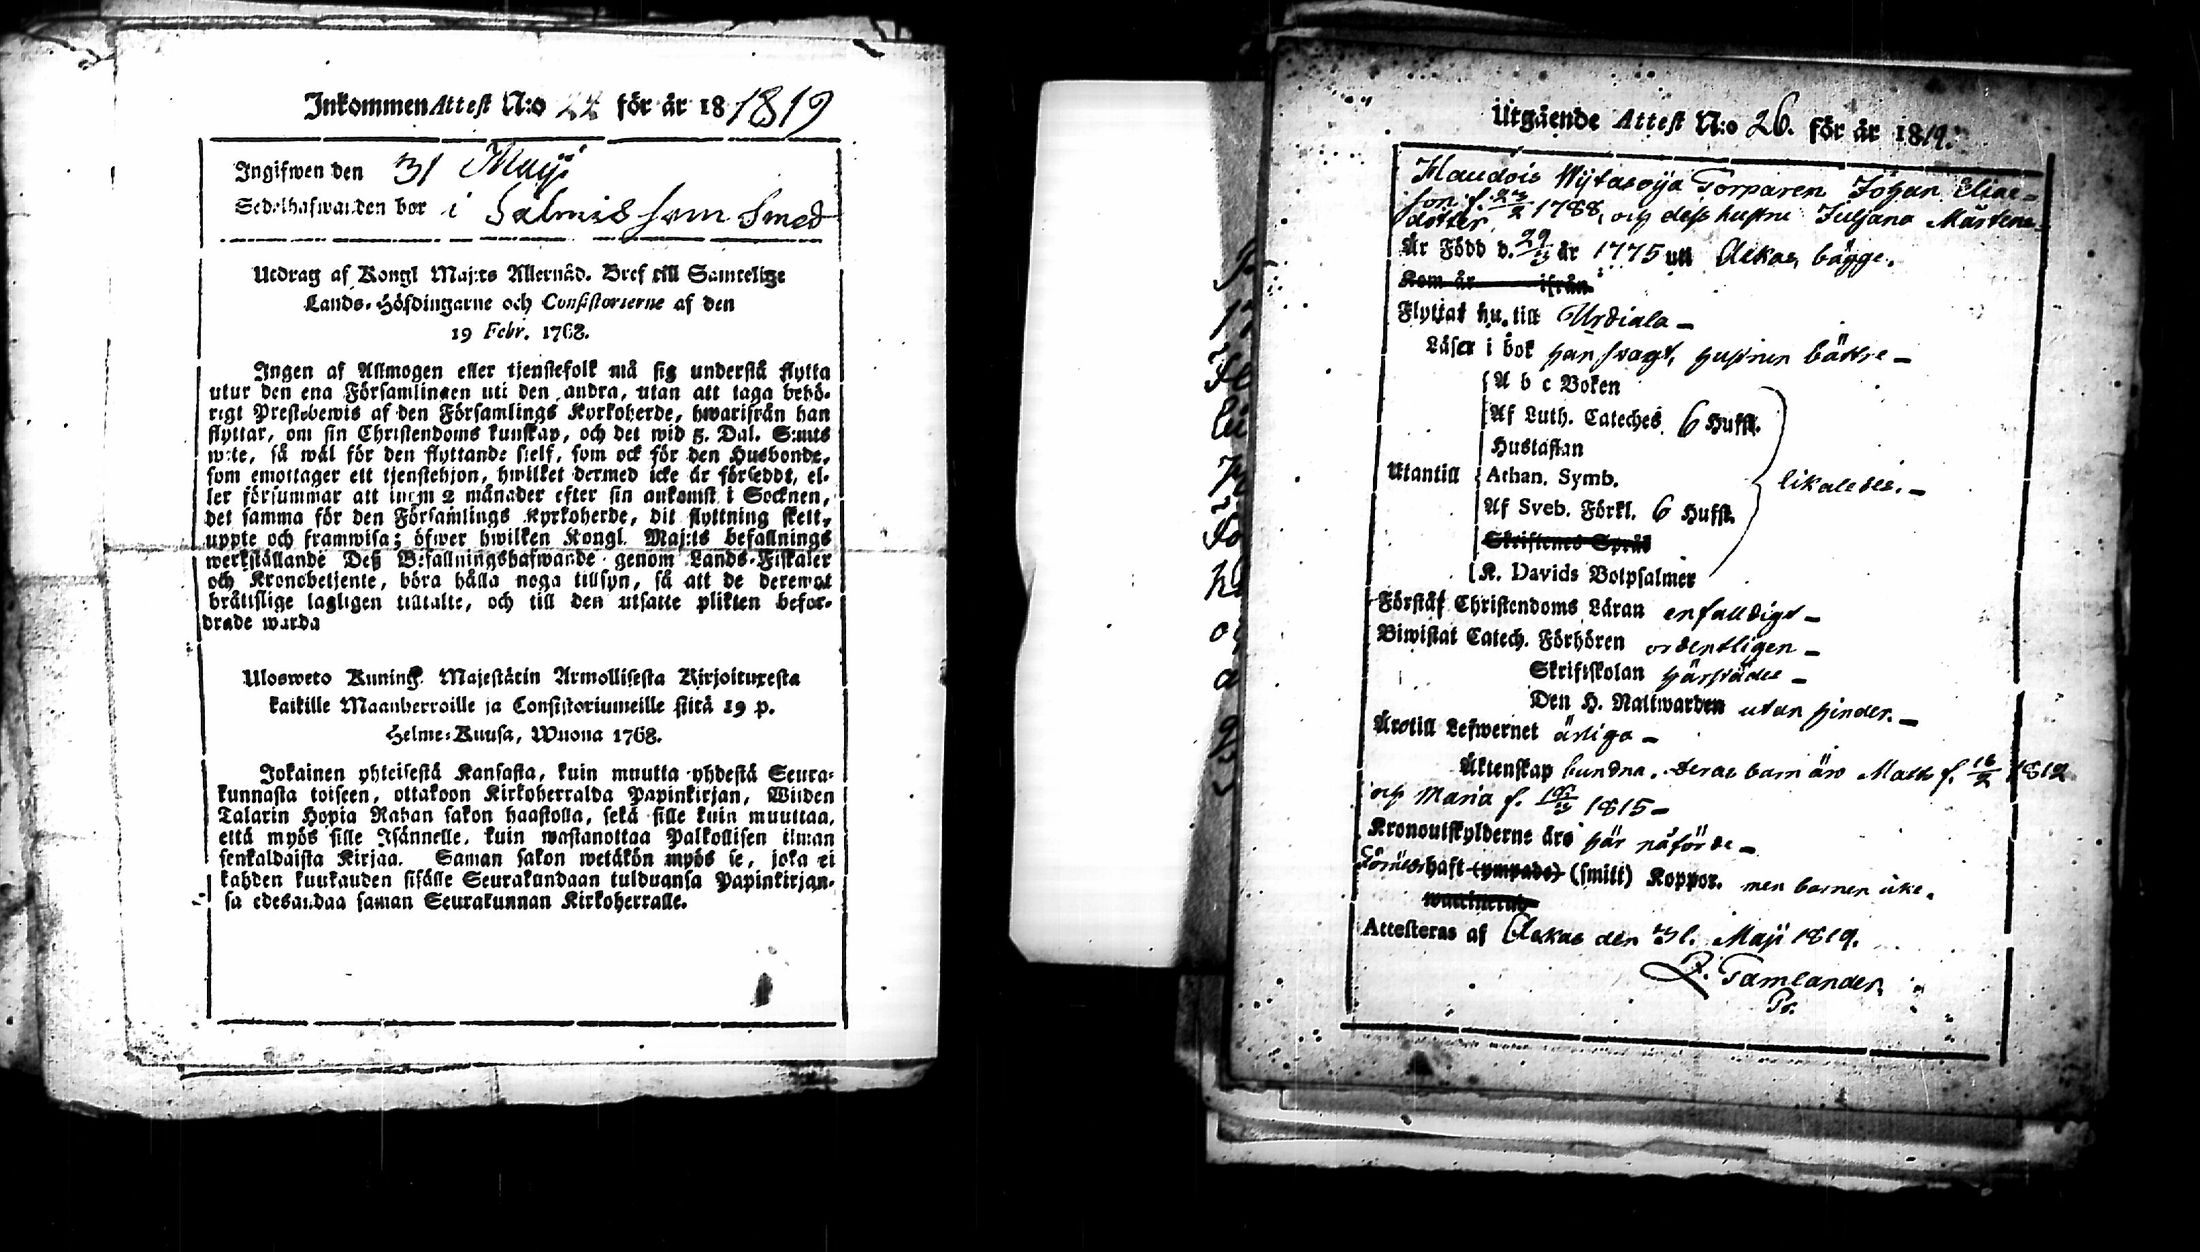 Inkommen Attest N:o 22 för år 18 1819
Ingifwen den 31 Maji
Sedelhafwanden bor i Salmis som Smed
Utdrag af Kongl Maj:ts Allernåd. Bref till Samtelige
Lands-Höfdingarne och Consistorierne af den
19 Febr. 1768.
Ingen af Allmogen eller tjenstefolk må sig understå flytta
utur den ena Församlingen uti den andra, utan att taga behö-
rigt Prestebewis af den Församlings Kyrkoherde, hwarifrån han
flyttar, om sin Christendoms kunskap, och det wid 5. Dal. S:mts
wite, så wäl för den flyttande sielf, som ock för den Husbonde,
som emottager ett tjenstehjon, hwilket dermed icke är förseddt, el-
ler försummar att inom 2 månader efter sin ankomst i Socknen,
det samma för den Församlings Kyrkoherde, dit flyttning skett,
uppte och framwisa; öfwer hwilken Kongl. Maj:ts befallnings
werkställande Deß Befallningshafwande genom Lands-Fiskaler
och Kronobetjente, böra hålla noga tillsyn, få att de deremot
bråttslige lagligen tilltalte, och till den utsatte plikten befor-
drade warda
Ulosweto Kuning. Majestätin Armollisesta Kirjoituxesta
kaikille Maanherroille ja Consistoriumeille siitä 19 p.
Helme-Kuusa, Wuona 1768.
Jokainen yhteisestä Kansasta, kuin muutta yhdestä Seura-
kunnasta toiseen, ottakoon Kirkoherralda Papinkirjan, Wiiden
Talarin Hopia Rahan sakon haastolla, sekä sille kuin muuttaa,
että myös sille Isännelle, kuin wastanottaa Palkollisen ilman
senkaldaista Kirjaa. Saman sakon wetäkön myös se, joka ei
kahden kuukauden sisälle Seurakundaan tulduansa Papinkirjan-
sa edesandaa saman Seurakunnan Kirkoherralle.
Utgående Attest N:o 26. för år 1819.
Haudois Wytasoija Torparen Johan Elias-
son f. 23/2 1788, och dess hustru Juljana Mårtens-
dotter
Är Född d. 29/3 år 1775 uti Ackas, bägge.
Kom år ifrån
Flyttat nu till Urdiala –
Läser i bok han svagt, hustrun bättre –
A b c Boken
Af Luth. Cateches 6 Hufst.
Hustaflan
Utantill Athan. Symb. likaledes. –
Af Sveb. Förkl. 6 Hufst.
Skriftenes Språk
K. Davids Botpsalmer
Förstår Christendoms Läran enfalldigt –
Biwistat Catech. Förhören ordentligen –
Skriftskolan härstädes –
Den H. Nattwarden utan hinder. –
Fört till Lefwernet ärliga –
Äktenskap bundna. deras barn äro Matts f. 16/2 1812
och Maria f. 18/3 1815 –
Kronoutskylderne äro här påförde –
Förut haft (ympade) (smitt) Koppor. men barnen icke.
Attesteras af Ackas den 31. Maji 1819.
Tamlander
Pr.